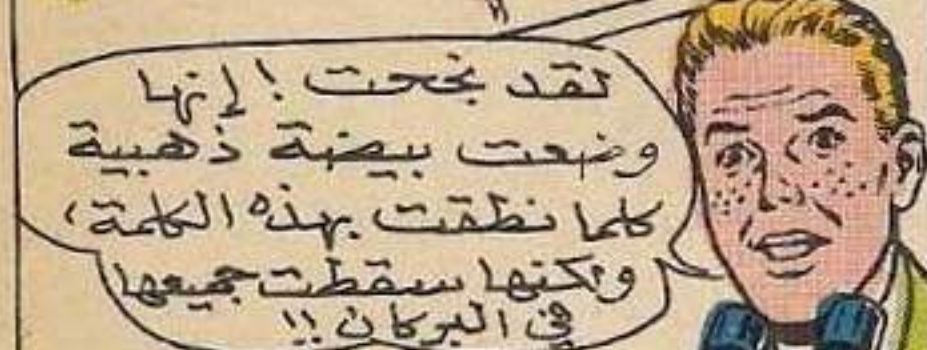 لقد نجحت ! إنها
وضعت بيضة ذهبية
كلما نطقت بهذه الكلمة ،
ولكنها سقطت جميعها
في البركان !!